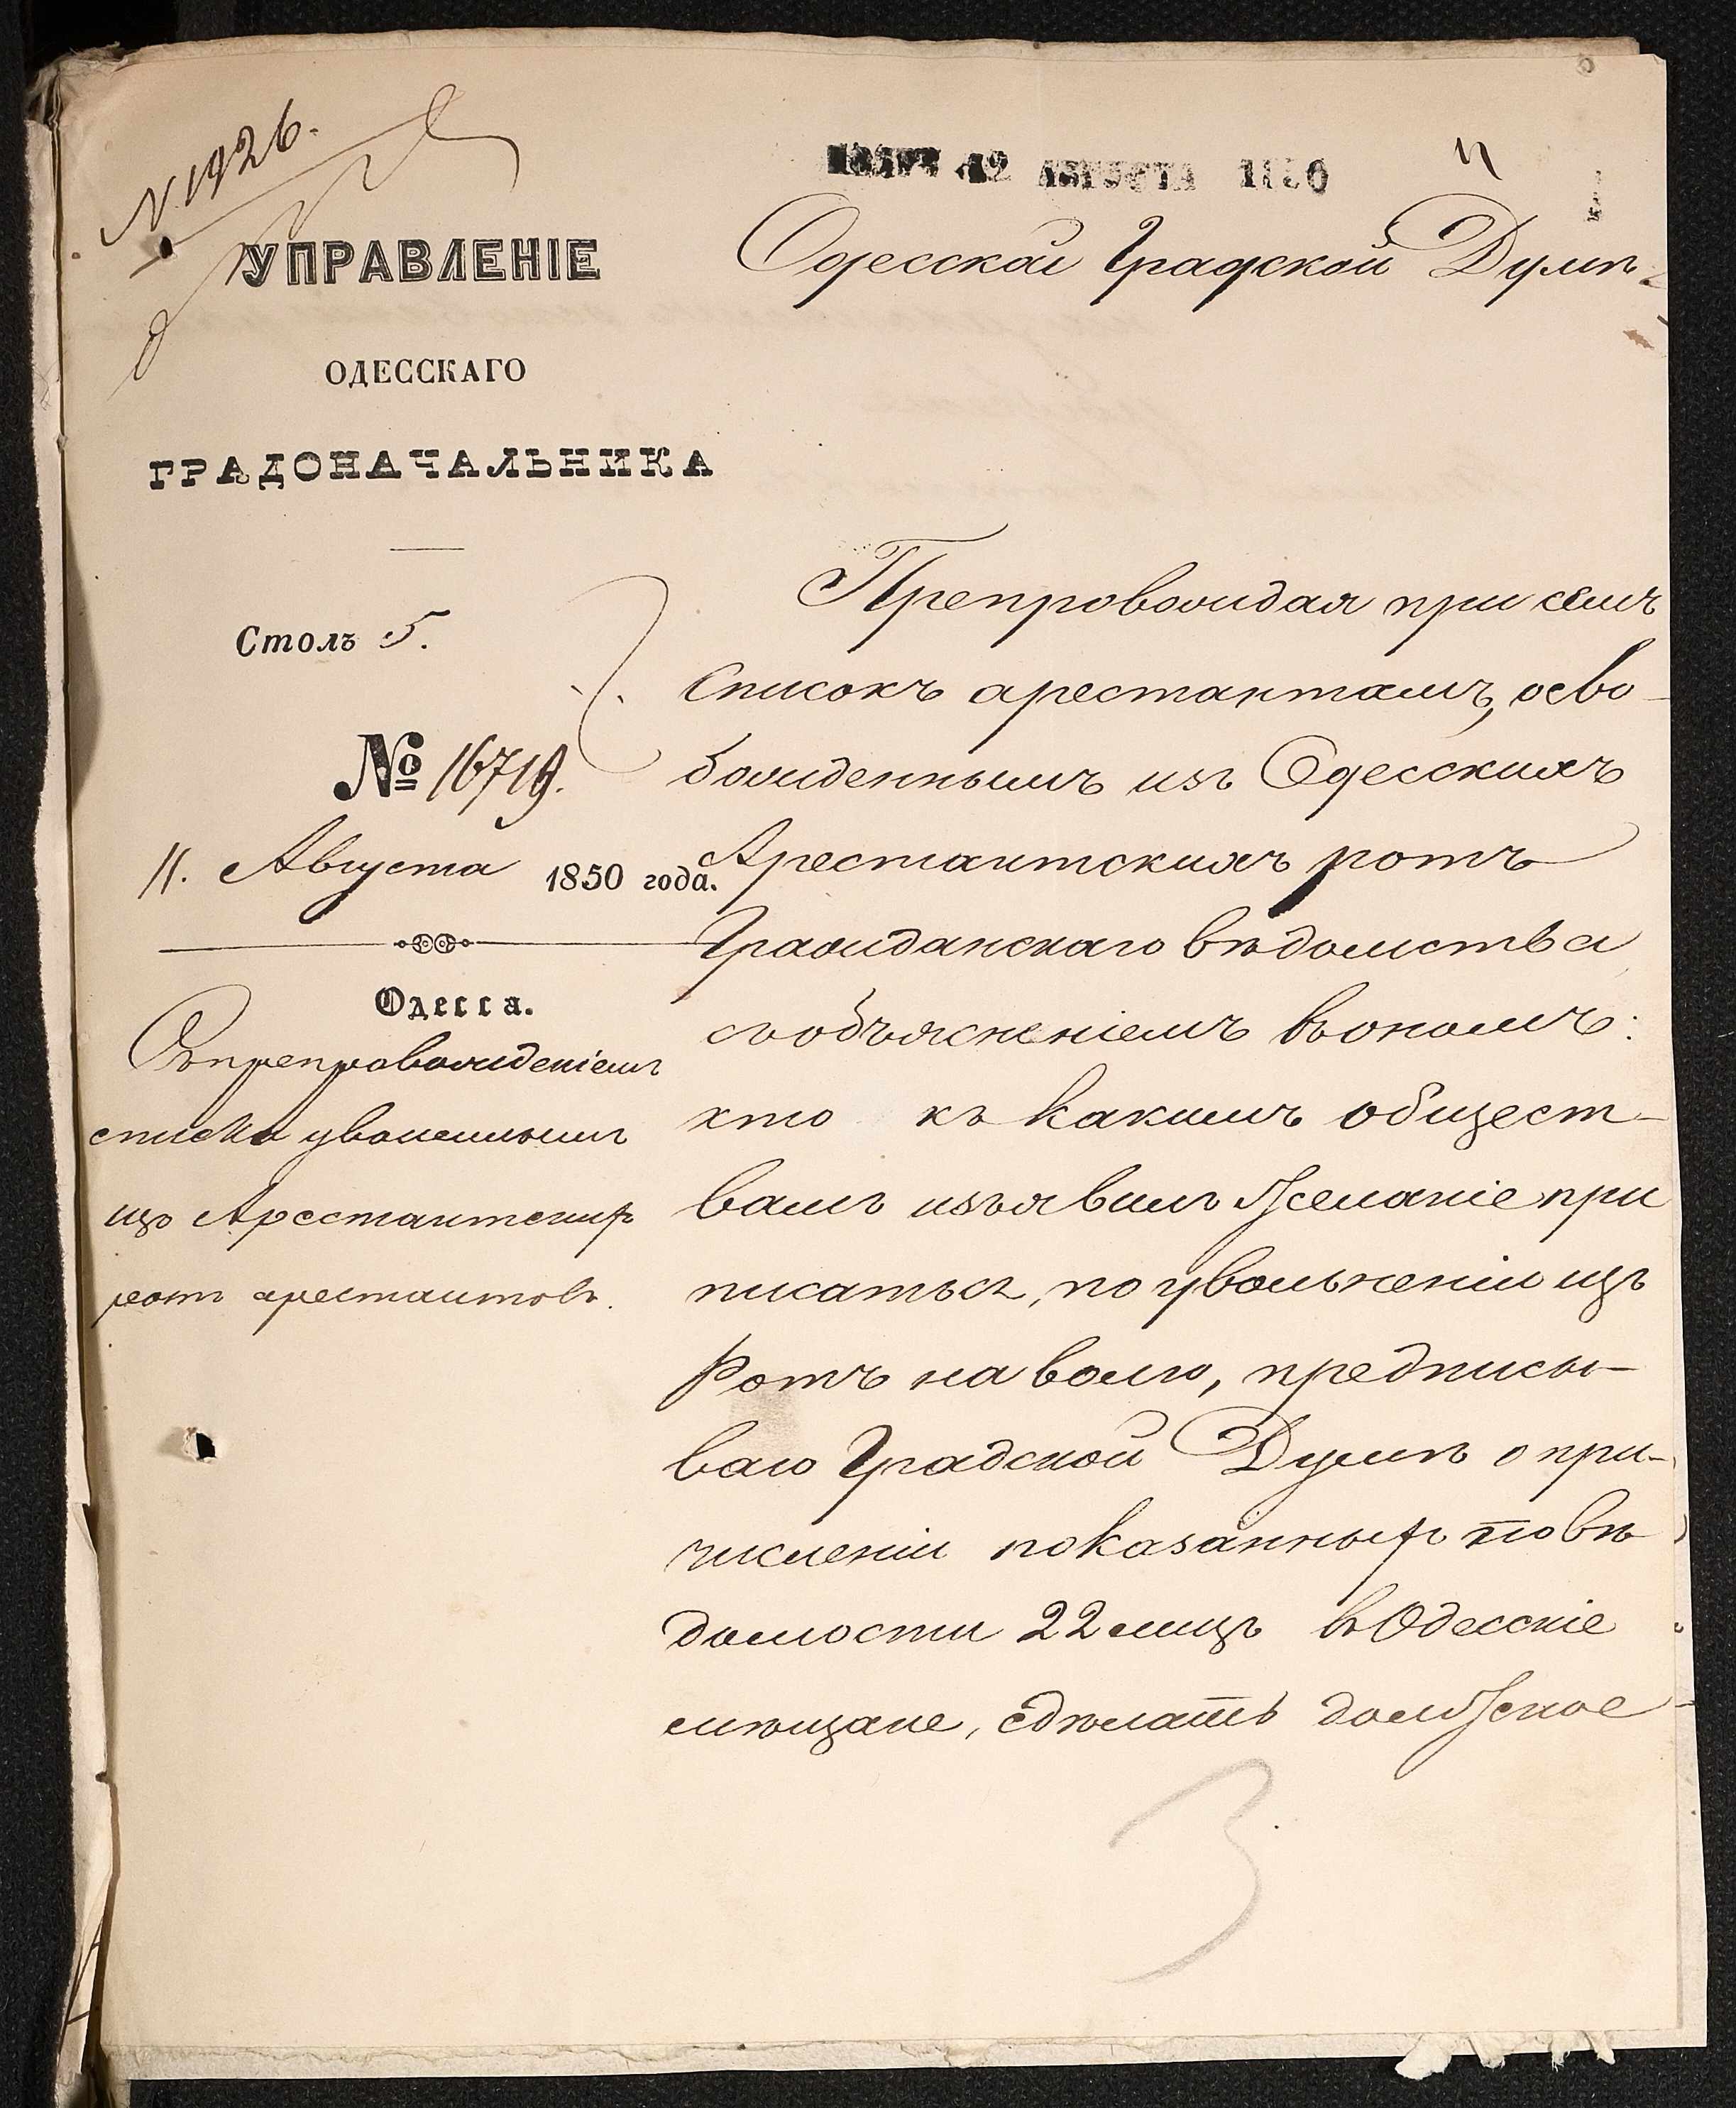 N 1926.
УПРАВЛЕНІЕ
ОДЕССКАГО
ГРАДОНАЧАЛЬНИКА
Столъ 5.
№ 16719.
11. Августа 1850 года.
Одесса.
Съ препровожденіемъ
списка уволеннымъ
изъ Арестантскихъ
ротъ арестантовъ.
12 АВГУСТА 1850
Одесской Градской Думѣ
Препровождая при семъ
списокъ арестантамъ, осво-
божденнымъ изъ Одесскихъ
Арестантскихъ ротъ
Гражданскаго вѣдомства
съ объясненіемъ въ ономъ:
кто къ какимъ общест-
вамъ изъявилъ желаніе при
писаться, по увольненіи изъ
Ротъ на волю, предписы-
ваю Градской Думѣ о при-
численіи показанныхъ по вѣ
домости 22 лицъ въ Одесскіе
мѣщане, сдѣлать должное
3